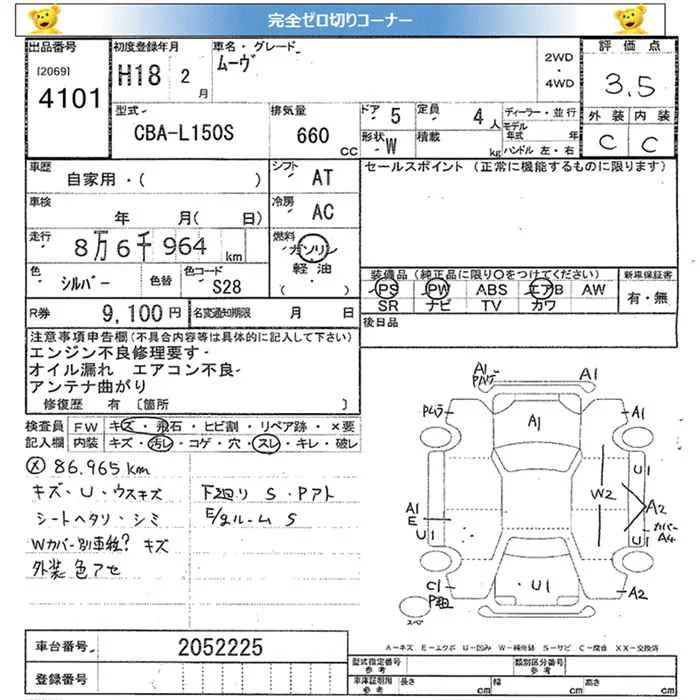 完全ゼロ切りコーナー
出品番号
[2069]
4101
初度登録年月
H18 2 月
車名・グレード
ムーヴ
2WD
・
4WD
評価点
3.5
外装 内装
C C
型式
CBA-L150S
排気量
660 CC
ドア 5
定員 4 人
形状 W
積載 kg
ディーラー・並行
モデル年式 年
ハンドル 左・右
車歴
自家用・( )
シフト
AT
車検
年 月( 日)
冷房
AC
走行
8万6千964 km
燃料
ガソリン
軽油
( )
色
シルバー
色替
色コード
S28
R券
9,100円
名変通知期限 月 日
セールスポイント (正常に機能するものに限ります)
装備品(純正品に限り○をつけてください)
PS PW ABS エアB AW
SR ナビ TV カワ
新車保証書
有・無
後日品
注意事項申告欄(不具合内容等は具体的に記入して下さい)
エンジン不良修理要す
オイル漏れ エアコン不良
アンテナ曲がり
修復歴 有 〔箇所 〕
検査員記入欄
FW キズ・飛石・ヒビ割・リペア跡・×要
内装 キズ・汚レ・コゲ・穴・スレ・キレ・破レ
ⓧ 86.965km
キズ・U・ウスキズ
シートヘタリ・シミ
Wカバー別車種? キズ
外装 色アセ
下回リ S・Pアト
E/gルーム S
A1
A1
A1
A1
W2
U1
A2
カバー
A4
U1
A2
A1
E
U1
C1
U1
スペア
A-キズ E-エクボ U-凹み W-補修跡 S-サビ C-腐食 XX-交換済
車台番号 2052225
登録番号
型式指定番号
参考
類別区分番号
参考
車庫証明用
参考
長さ cm 幅 cm 高さ cm